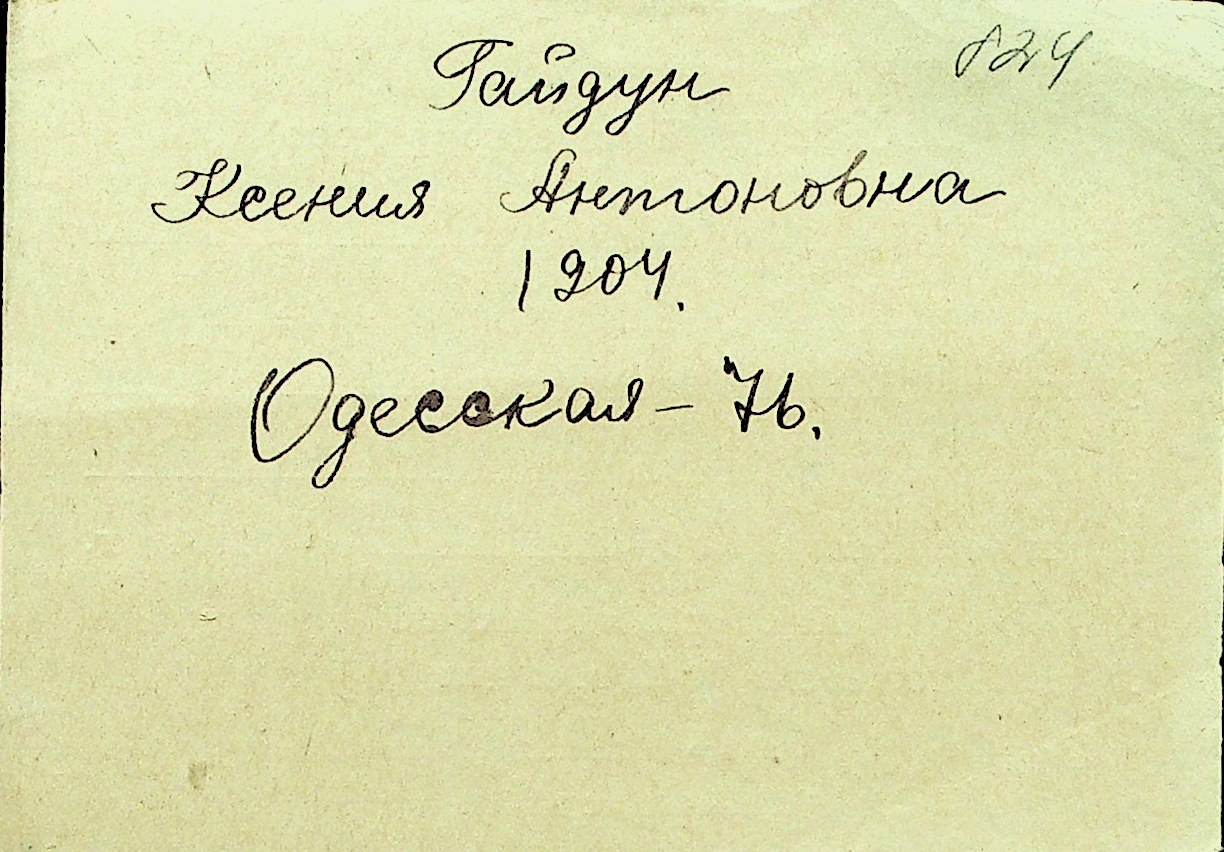 824
Гайдун
Ксения Антоновна
1904.
Одесская - 76.